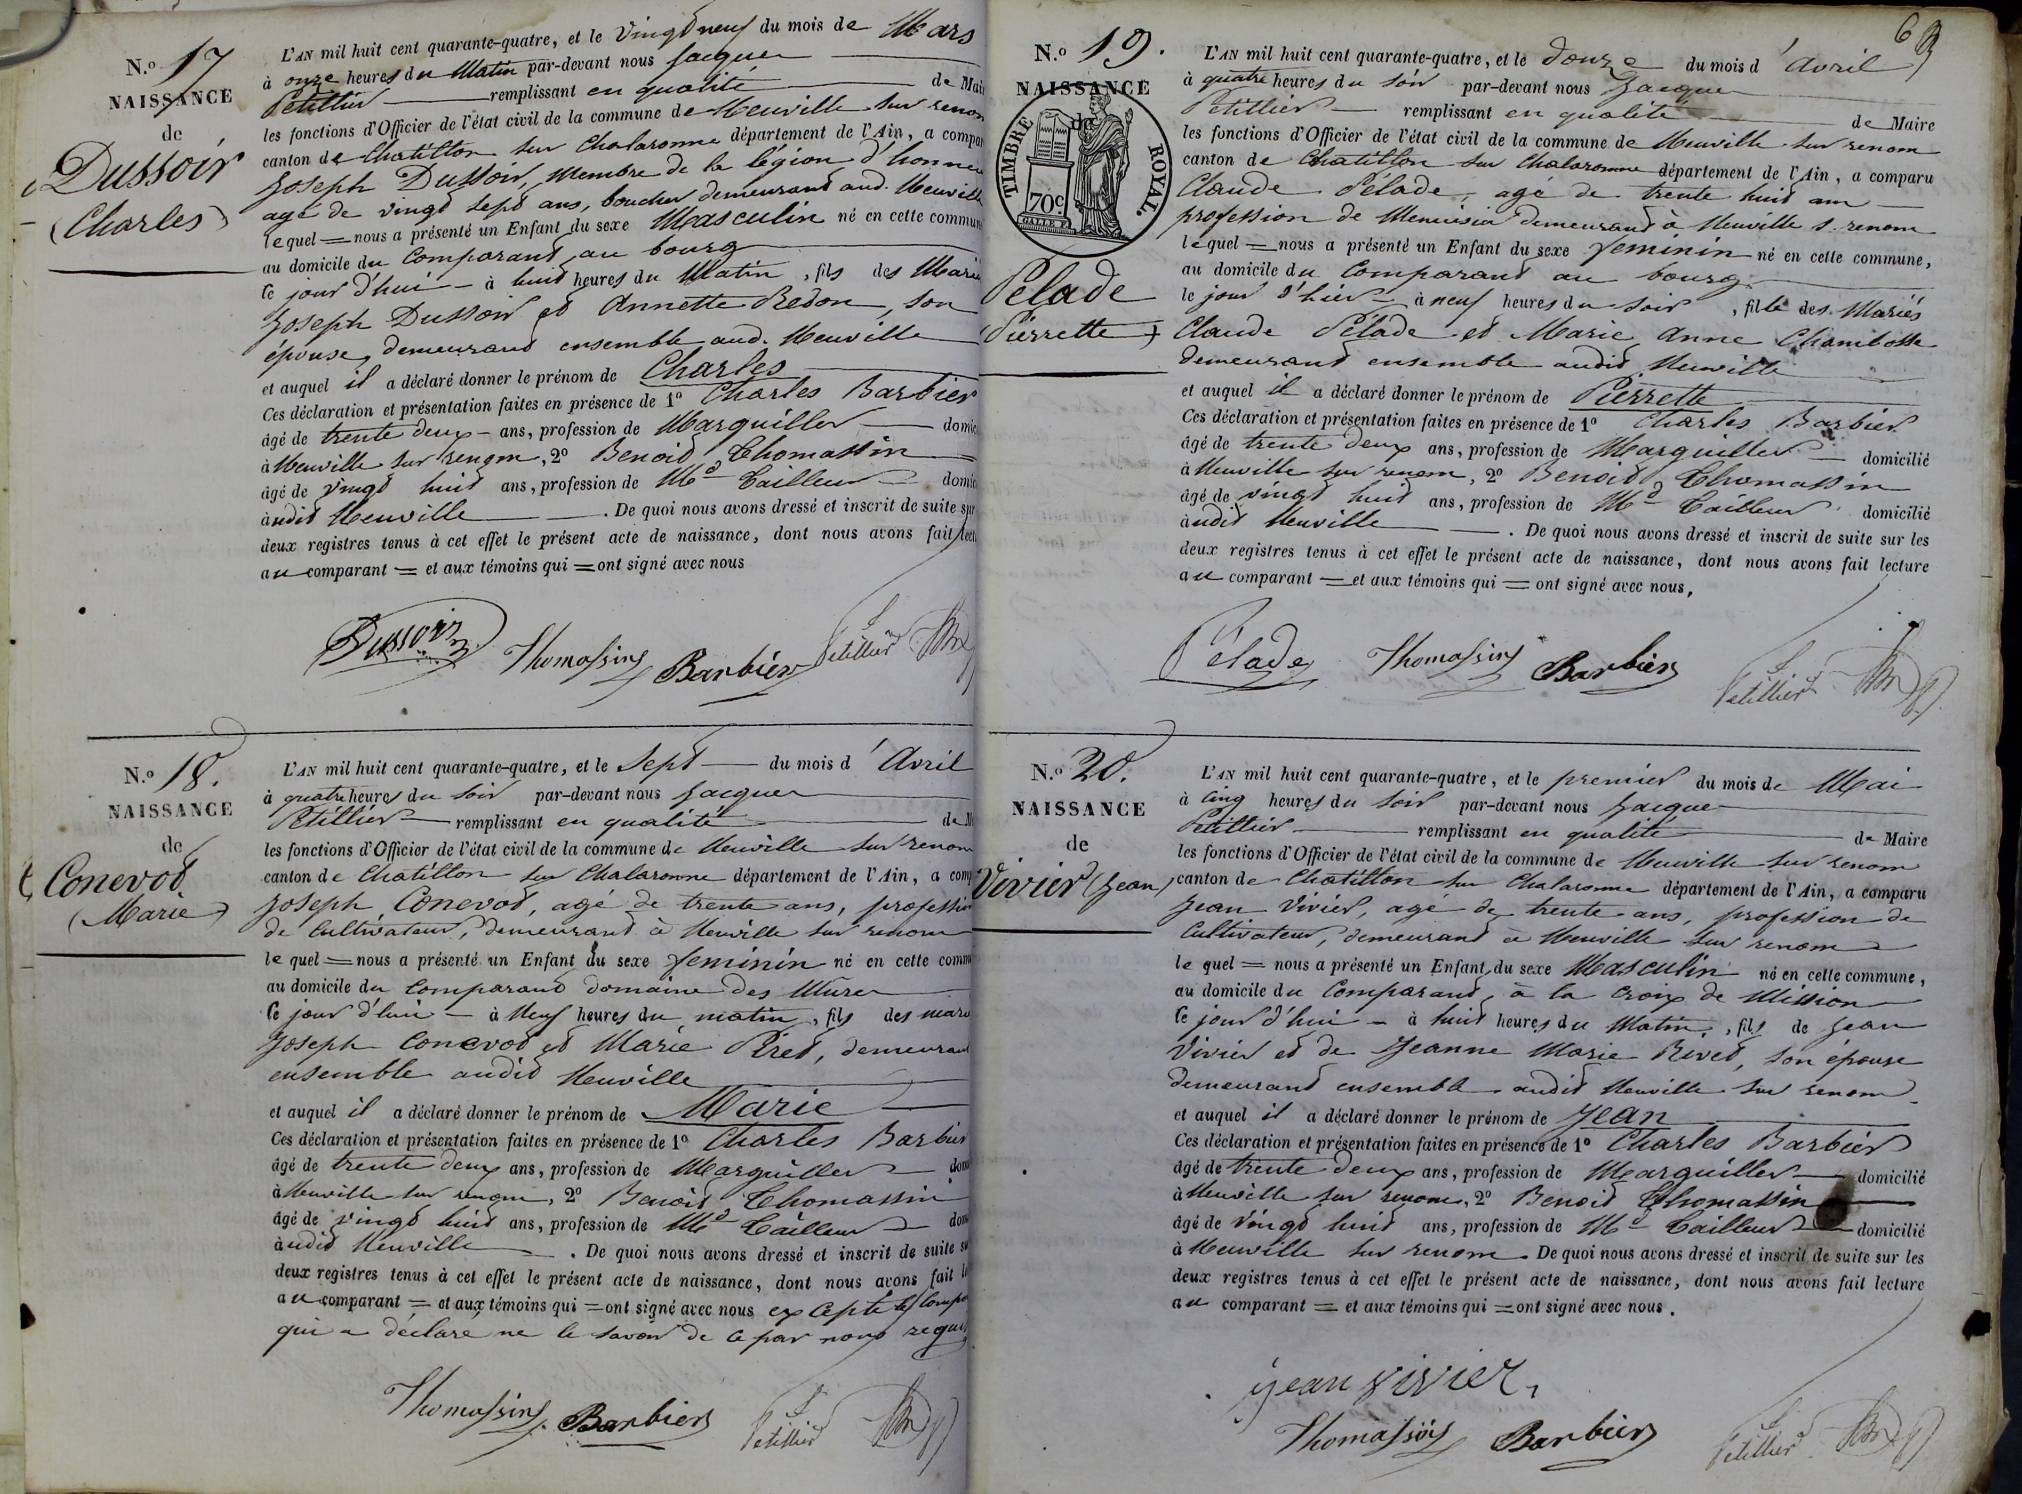 N.º 17
NAISSANCE
de
Dussoir
(Charles)
L'AN mil huit cent quarante-quatre, et le vingt neuf du mois de Mars
à onze heures du Matin par-devant nous Jacques
Petillier remplissant en qualité de Mai
les fonctions d'Officier de l'état civil de la commune de Neuville sur renon
canton de Chatillon sur Chalaronne département de l'Ain, a compar
Joseph Dussoir, Membre de la légion d'honneu
agé de vingt sept ans, boucher demeurant aud. Neuville
lequel = nous a présenté un Enfant du sexe Masculin né en cette commun
au domicile du Comparant, au bourg
ce jour d'hui - à huit heures du Matin, fils des Mariés
Joseph Dussoir et Annette Redon, son
épouse, demeurant ensemble aud. Neuville
et auquel il a déclaré donner le prénom de Charles
Ces déclaration et présentation faites en présence de 1º Charles Barbier
âgé de trente deux - ans, profession de Marguiller domic
à Neuville sur renom, 2º Benoit Thomassin
âgé de vingt huit ans, profession de Md Tailleur domic
àudit Neuville. De quoi nous avons dressé et inscrit de suite sur
deux registres tenus à cet effet le présent acte de naissance, dont nous avons fait lect
au comparant = et aux témoins qui = ont signé avec nous
Dussoir Thomassin Barbier Petillier
N.º 18.
NAISSANCE
de
Conevot
(Marie)
L'AN mil huit cent quarante-quatre, et le Sept du mois d'Avril
à quatre heures du soir par-devant nous Jacques
Petillier remplissant en qualité de M
les fonctions d'Officier de l'état civil de la commune de Neuville sur renom
canton de Chatillon sur Chalaronne département de l'Ain, a comp
Joseph Conevot, agé de trente ans, profession
de Cultivateur, demeurant à Neuville sur renom
le quel = nous a présenté un Enfant du sexe feminin né en cette comm
au domicile du comparant domaine des Mures
Ce jour d'hui - à Neuf heures du matin, fils des mari
Joseph Conevot et Marie Pret, demeurant
ensemble audit Neuville
et auquel il a déclaré donner le prénom de Marie
Ces déclaration et présentation faites en présence de 1º Charles Barbier
âgé de trente deux ans, profession de Marguiller dom
à Neuville sur renom, 2º Benoit Thomassin
âgé de vingt huit ans, profession de Md Tailleur dom
àudit Neuville. De quoi nous avons dressé et inscrit de suite su
deux registres tenus à cet effet le présent acte de naissance, dont nous avons fait le
au comparant = et aux témoins qui = ont signé avec nous excepté le Compa
qui a déclaré ne le savoir de ce par nous requis
Thomassin Barbier Petillier
6
N.º 19.
NAISSANCE
de
TIMBRE ROYAL.
70c
Pelade
(Pierrette)
L'AN mil huit cent quarante-quatre, et le douze du mois d'Avril
à quatre heures du soir par-devant nous Jacques
Petillier remplissant en qualité de Maire
les fonctions d'Officier de l'état civil de la commune de Neuville sur renom
canton de Chatillon sur Chalaronne département de l'Ain, a comparu
Claude Pélade, agé de trente huit ans
profession de Menuisier demeurant à Neuville s. renom
lequel = nous a présenté un Enfant du sexe feminin né en cette commune,
au domicile du Comparant au bourg
le jour d'hier - à neuf heures du soir, fille des Mariés
Claude Pélade et Marie Anne Chambosse
demeurant ensemble audit Neuville
et auquel il a déclaré donner le prénom de Pierrette
Ces déclaration et présentation faites en présence de 1º Charles Barbier
âgé de trente deux ans, profession de Marguiller domicilié
à Neuville sur renom, 2º Benoit Thomassin
âgé de vingt huit ans, profession de Md Tailleur domicilié
àudit Neuville. De quoi nous avons dressé et inscrit de suite sur les
deux registres tenus à cet effet le présent acte de naissance, dont nous avons fait lecture
au comparant = et aux témoins qui = ont signé avec nous.
Pélade Thomassin Barbier Petillier
N.º 20.
NAISSANCE
de
Vivier (Jean)
L'AN mil huit cent quarante-quatre, et le premier du mois de Mai
à cinq heures du soir par-devant nous Jacques
Petillier remplissant en qualité de Maire
les fonctions d'Officier de l'état civil de la commune de Neuville sur renom
canton de Chatillon sur Chalaronne département de l'Ain, a comparu
Jean Vivier, agé de trente ans, profession de
Cultivateur, demeurant à Neuville sur renom
le quel = nous a présenté un Enfant du sexe Masculin né en cette commune,
au domicile du Comparant, à la croix de Mission
Ce jour d'hui - à huit heures du Matin, fils de Jean
Vivier et de Jeanne Marie Rivet, son épouse
demeurant ensemble audit Neuville sur renom
et auquel il a déclaré donner le prénom de Jean
Ces déclaration et présentation faites en présence de 1º Charles Barbier
âgé de trente deux ans, profession de Marguiller domicilié
à Neuville sur renom, 2º Benoit Thomassin
âgé de vingt huit ans, profession de Md Tailleur domicilié
à Neuville sur renom. De quoi nous avons dressé et inscrit de suite sur les
deux registres tenus à cet effet le présent acte de naissance, dont nous avons fait lecture
au comparant = et aux témoins qui = ont signé avec nous.
jean vivier
Thomassin Barbier Petillier